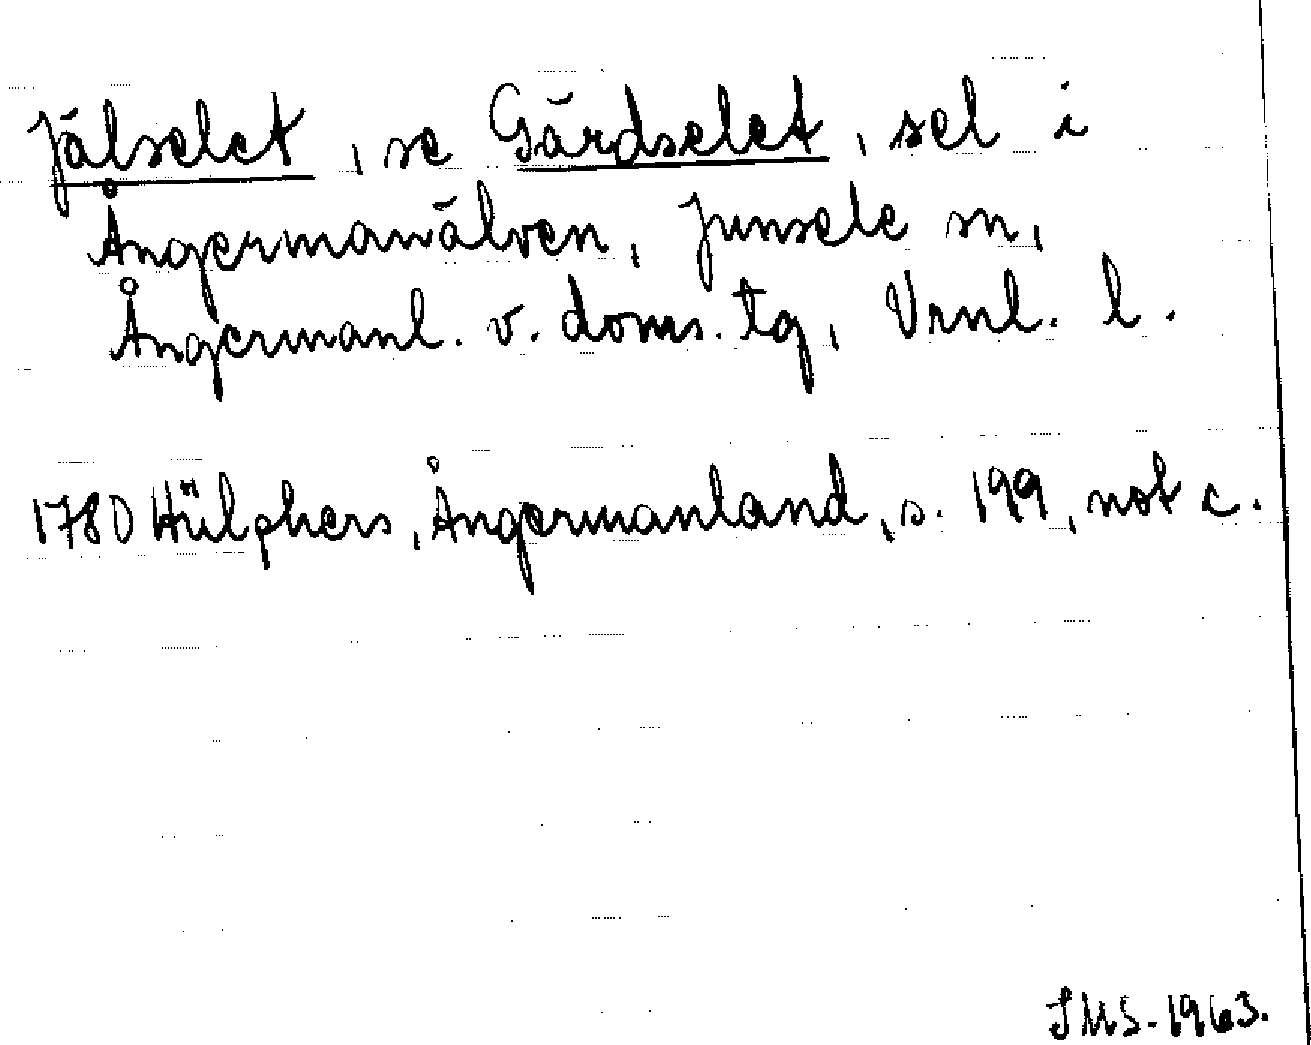 Jälselet, se Gärdselet, sel i
Ångermanälven, Junsele sn,
Ångermanl. v. doms. tg, Vrnl. l.
1780 Hülphers, Ångermanland, s. 199, not c.
SMS. 1963.